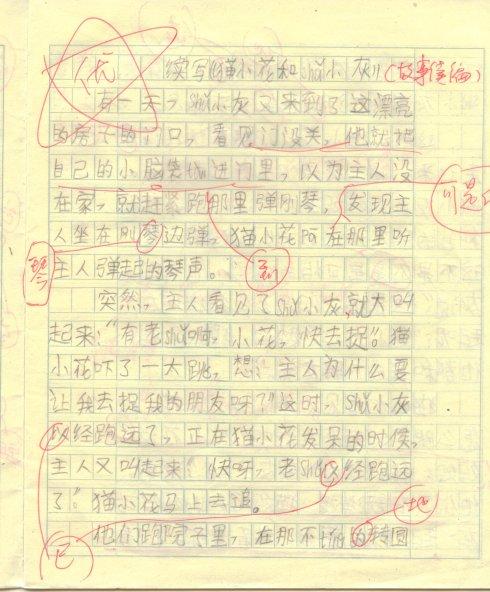 优 续写《猫小花和shǔ小灰》(故事新编)
有一天，shǔ小灰又来到了这漂亮
的房子的门口，看见门没关，他就把
自己的小脑袋伸进门里，以为主人没
在家，就赶紧跑那里弹刚琴，发现主 可是
人坐在刚琴边弹，猫小花啊在那里听
琴 主人弹起的琴声。 到
突然，主人看见了shǔ小灰，就大叫
起来："有老shǔ啊，小花，快去捉。"猫
小花吓了一大跳，想："主人为什么要
让我去捉我的朋友呀？"这时，shǔ小灰
以经跑远了，正在猫小花发呆的时候，
主人又叫起来："快呀，老shǔ以经跑远
了。"猫小花马上去追。 地
已 他们跑院子里，在那不tíng的转圆